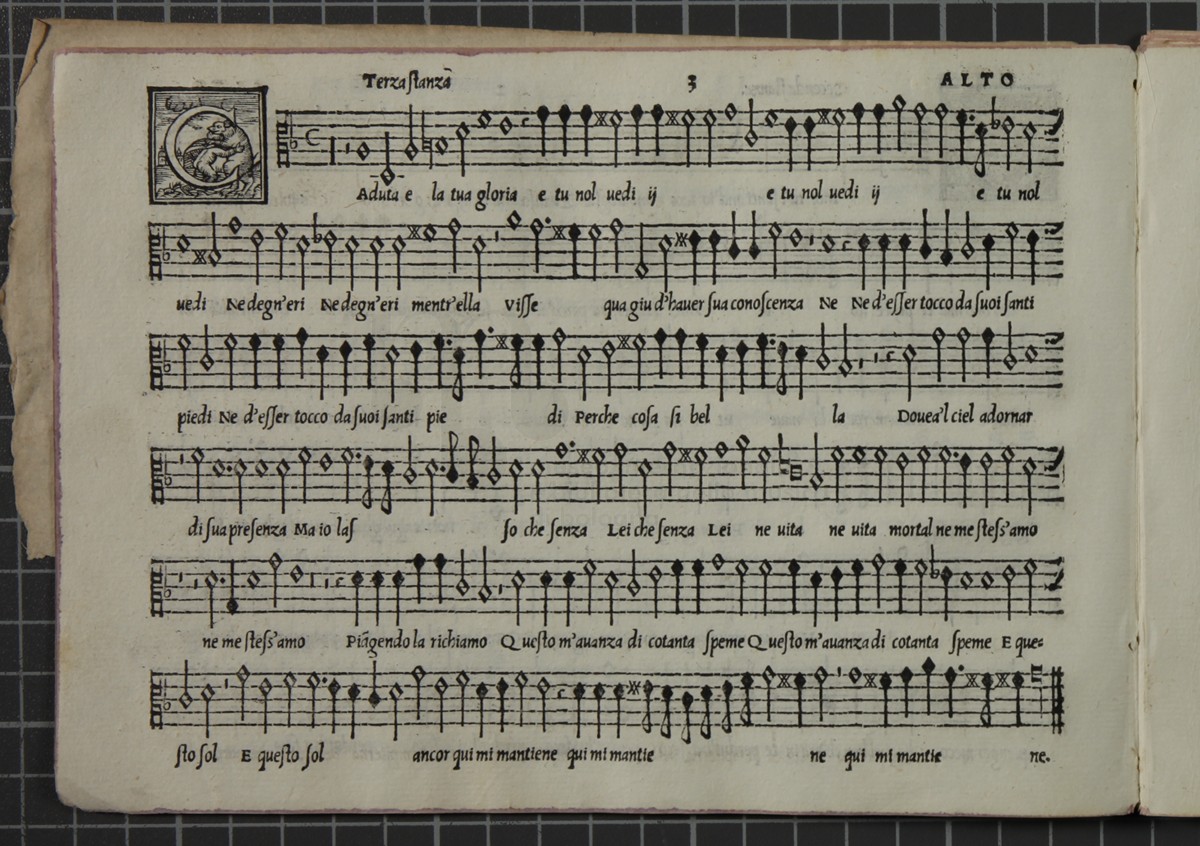 Terza stanzā 3 ALTO
C Aduta e la tua gloria e tu nol uedi ij e tu nol uedi ij e tu nol
uedi Ne degn'eri Ne degn'eri mentr'ella Visse qua giu d'hauer sua conoscenza Ne Ne d'esser tocco da suoi santi
piedi Ne d'esser tocco da suoi santi pie di Perche cosa si bel la Douea'l ciel adornar
di sua presenza Ma io las so che senza Lei che senza Lei ne uita ne uita mortal ne me stess'amo
ne me stess'amo Piāgendo la richiamo Questo m'auanza di cotanta speme Questo m'auanza di cotanta speme E que=
sto sol E questo sol ancor qui mi mantiene qui mi mantie ne qui mi mantie ne.